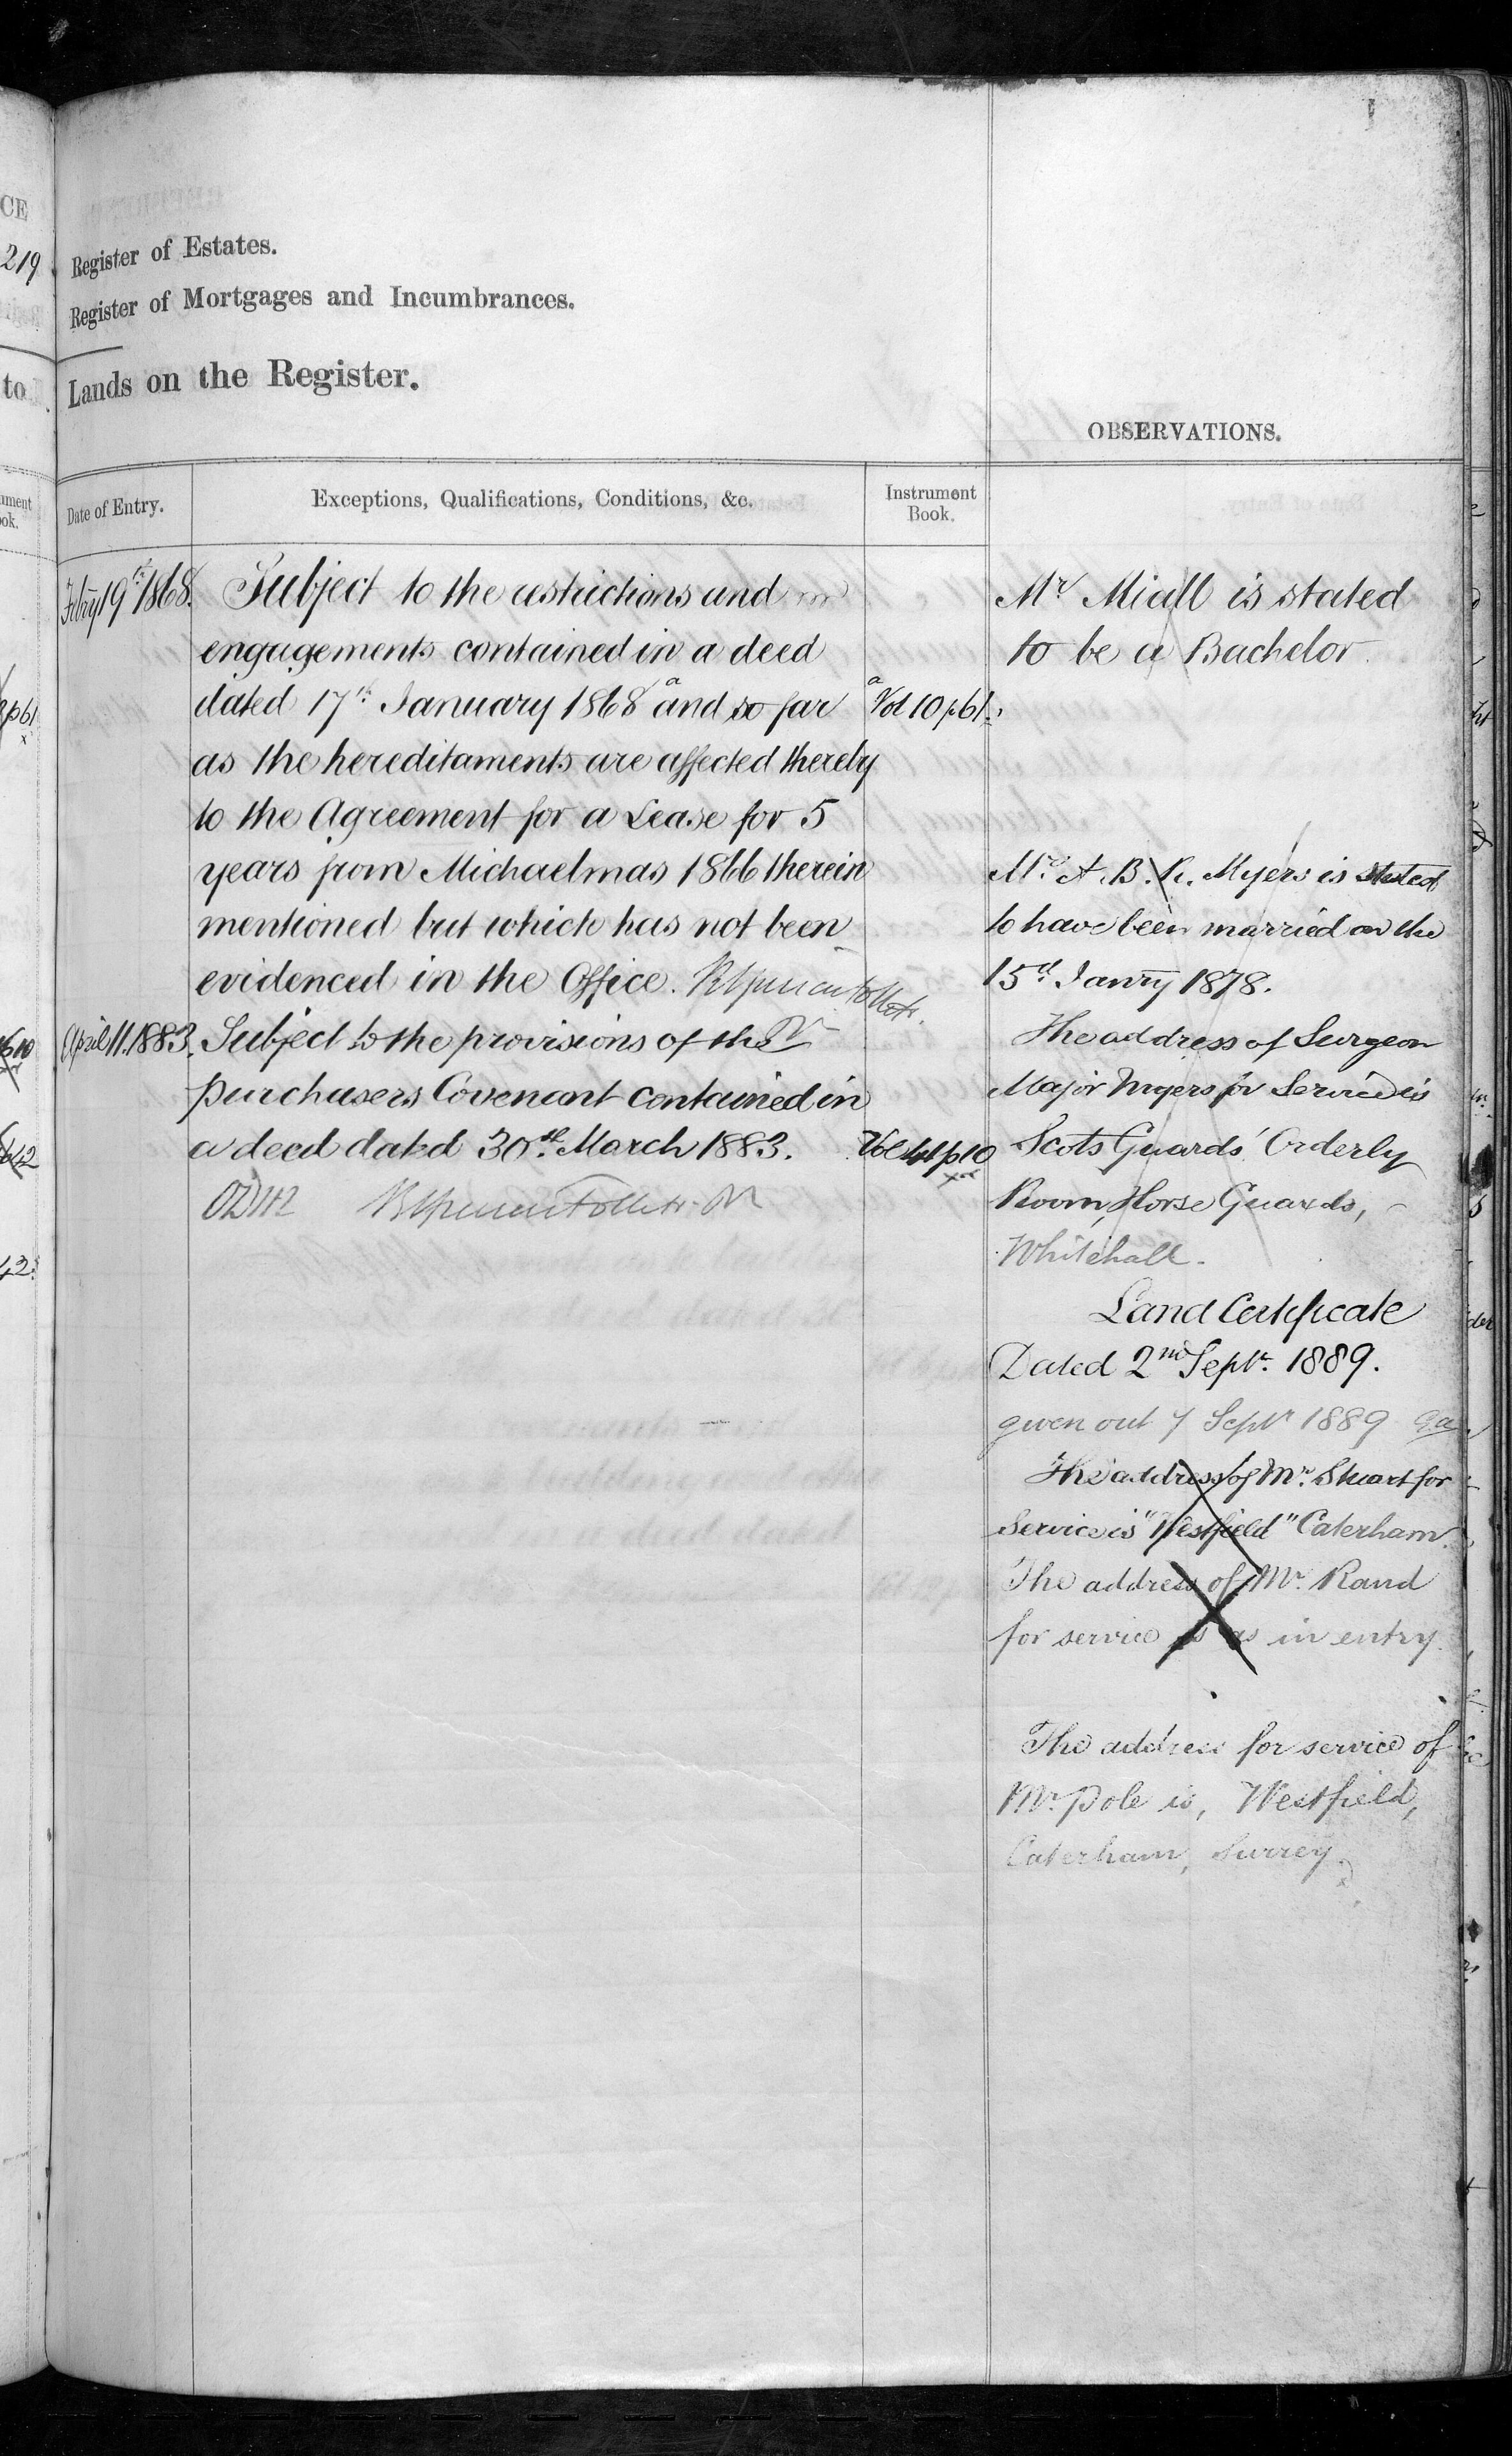 CE
219
Register of Estates.
Register of Mortgages and Incumbrances.
to
Lands on the Register.
OBSERVATIONS.
Date of Entry.
Exceptions, Qualifications, Conditions, &c.
Instrument
Book.
Febry 19th 1868. Subject to the restrictions and
engagements contained in a deed
dated 17th January 1868 a and so far
a Vol 10 p 61.
as the hereditaments are affected thereby
to the Agreement for a Lease for 5
years from Michaelmas 1866 therein
mentioned but which has not been
evidenced in the Office.
April 11. 1883. Subject to the provisions of the
purchasers Covenant contained in
a deed dated 30th March 1883.
Vol 41 p 10
Mr Miall is stated
to be a Bachelor.
Mr. A. B. R. Myers is stated
to have been married on the
15th Janry 1878.
The address of Surgeon
Major Myers for Service is
Scots Guards' Orderly
Room, Horse Guards,
Whitehall.
Land Certificate
Dated 2nd Septr. 1889.
given out 7 Septr 1889
The address of Mr. Stuart for
Service is "Westfield" Caterham.
The address of Mr. Rand
for service is as in entry.
The address for service of
Mr. Pole is, Westfield,
Caterham, Surrey.